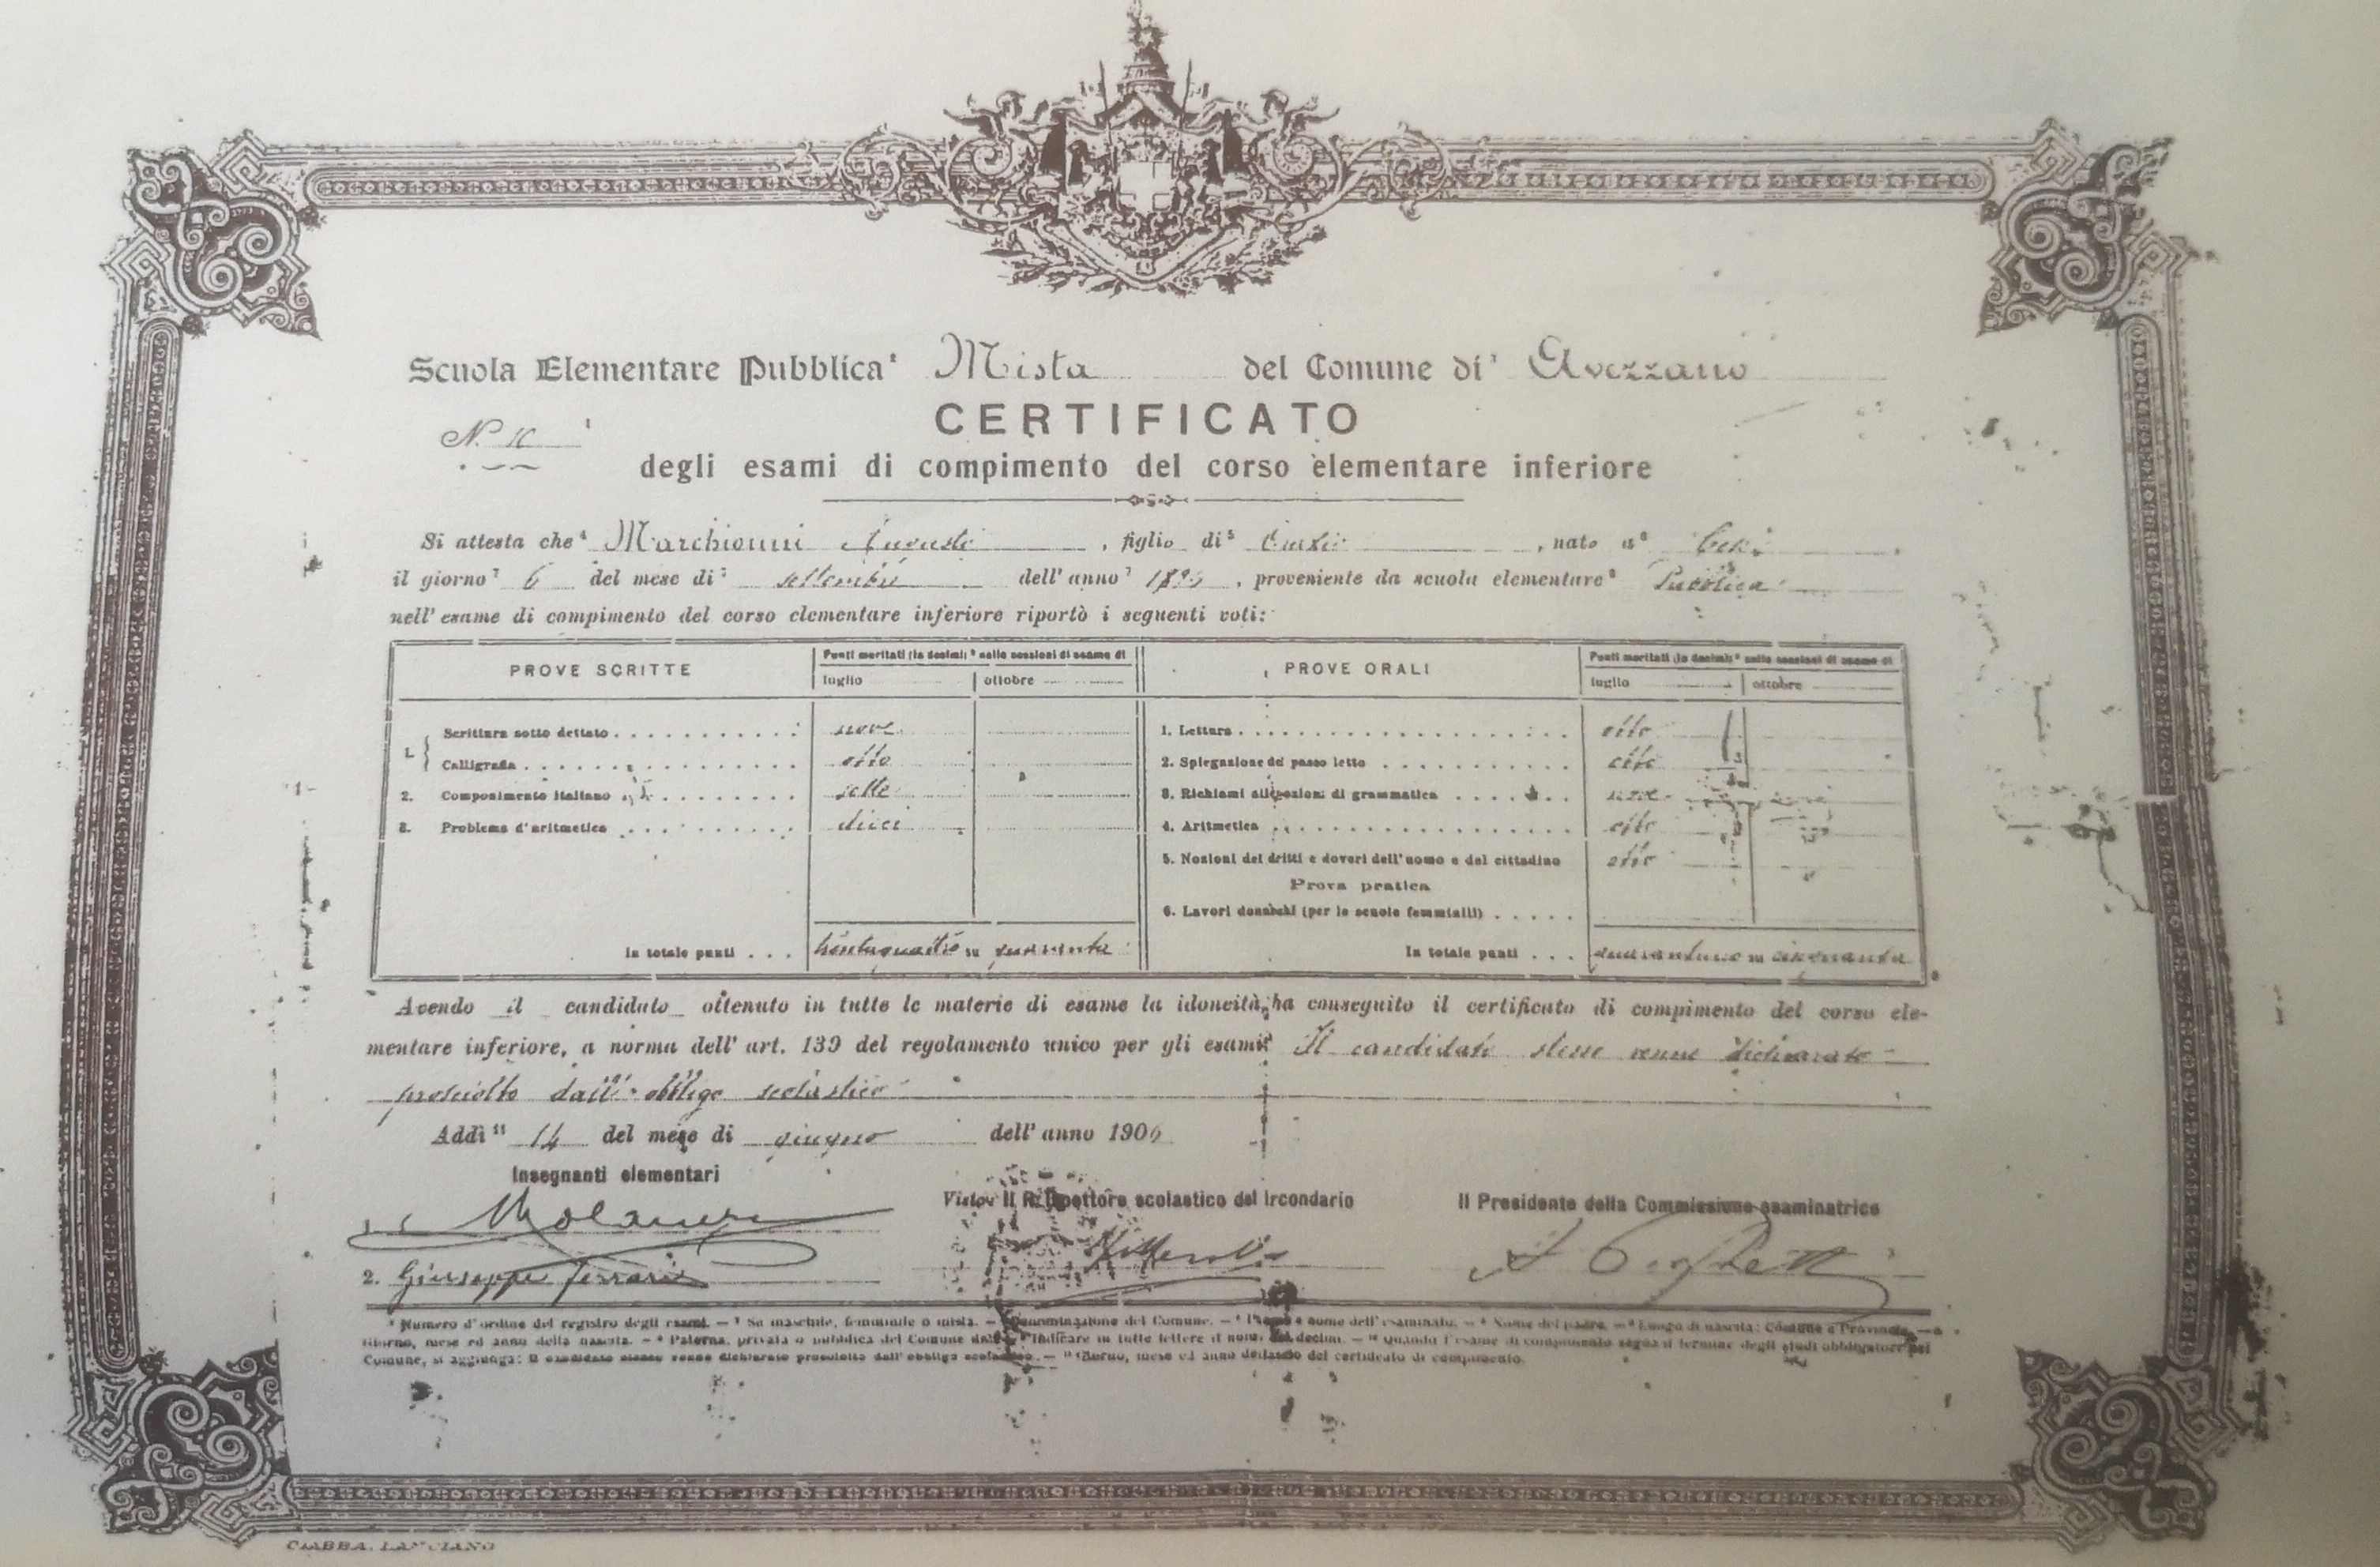 Scuola Elementare Pubblica¹ Mista del Comune di³ Avezzano
N. 10 ¹
CERTIFICATO
degli esami di compimento del corso elementare inferiore
Si attesta che⁴ Marchionni Augusto, figlio di⁵, nato a⁶
il giorno⁷ 6 del mese di⁷ settembre dell'anno⁷, proveniente da scuola elementare⁸ Pubblica
nell'esame di compimento del corso elementare inferiore riportò i seguenti voti:
PROVE SCRITTE
Punti meritati (in decimi)⁹ nelle sessioni di esame di
luglio ottobre
1. Scrittura sotto dettato nove
Calligrafia otto
2. Componimento italiano sette
3. Problema d'aritmetica dieci
In totale punti trentaquattro su quaranta
PROVE ORALI
Punti meritati (in decimi)⁹ nelle sessioni di esame di
luglio ottobre
1. Lettura otto
2. Spiegazione del passo letto otto
3. Richiami alle nozioni di grammatica nove
4. Aritmetica otto
5. Nozioni dei dritti e doveri dell'uomo e del cittadino otto
Prova pratica
6. Lavori donneschi (per le scuole femminili)
In totale punti quarantuno su cinquanta
Avendo il candidato ottenuto in tutte le materie di esame la idoneità, ha conseguito il certificato di compimento del corso ele-
mentare inferiore, a norma dell'art. 139 del regolamento unico per gli esami¹⁰ Il candidato stesso venne dichiarato
prosciolto dall'obbligo scolastico
Addì¹¹ 14 del mese di giugno dell'anno 1906
Insegnanti elementari
2. Giuseppe Ferrari
Visto: Il R. Ispettore scolastico del Circondario
Il Presidente della Commissione esaminatrice
¹ Numero d'ordine del registro degli esami. — ² Se maschile, femminile o mista. — ³ Denominazione del Comune. — ⁴ Nome e nome dell'esaminato. — ⁵ Nome del padre. — ⁶ Luogo di nascita: Comune e Provincia. — ⁷
Giorno, mese ed anno della nascita. — ⁸ Paterna, privata o pubblica del Comune di — ⁹ Indicare in tutte lettere il num. dei decimi. — ¹⁰ Quando l'esame di compimento segna il termine degli studi obbligatori pel
Comune, si aggiunga: Il candidato stesso venne dichiarato prosciolto dall'obbligo scolastico. — ¹¹ Giorno, mese ed anno del rilascio del certificato di compimento.
CIABBA. LANCIANO